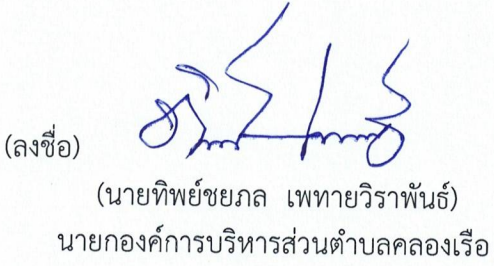 (ลงชื่อ)
(นายทิพย์ชยภล เพทายวิราพันธ์)
นายกองค์การบริหารส่วนตำบลคลองเรือ